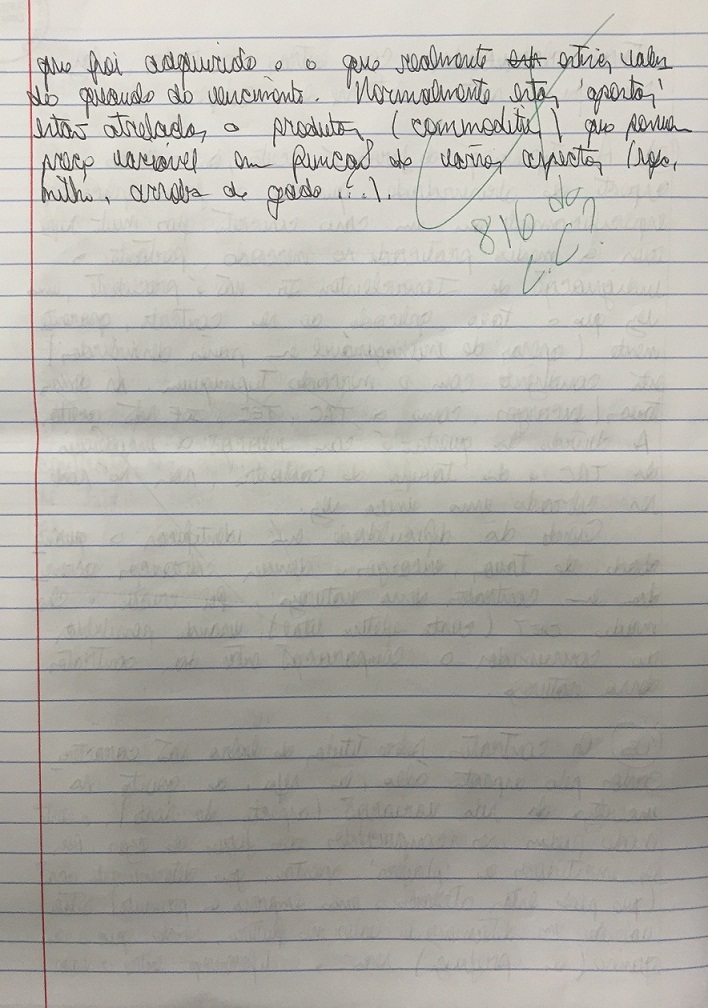 que foi adquirido e o que realmente estiver valen
do quando do vencimento. Normalmente estas 'apostas'
estão atreladas a produtos (commodities) que possuem
preço variável em função de vários aspectos (soja,
milho, arroba de gado...).
816 do
C.C?